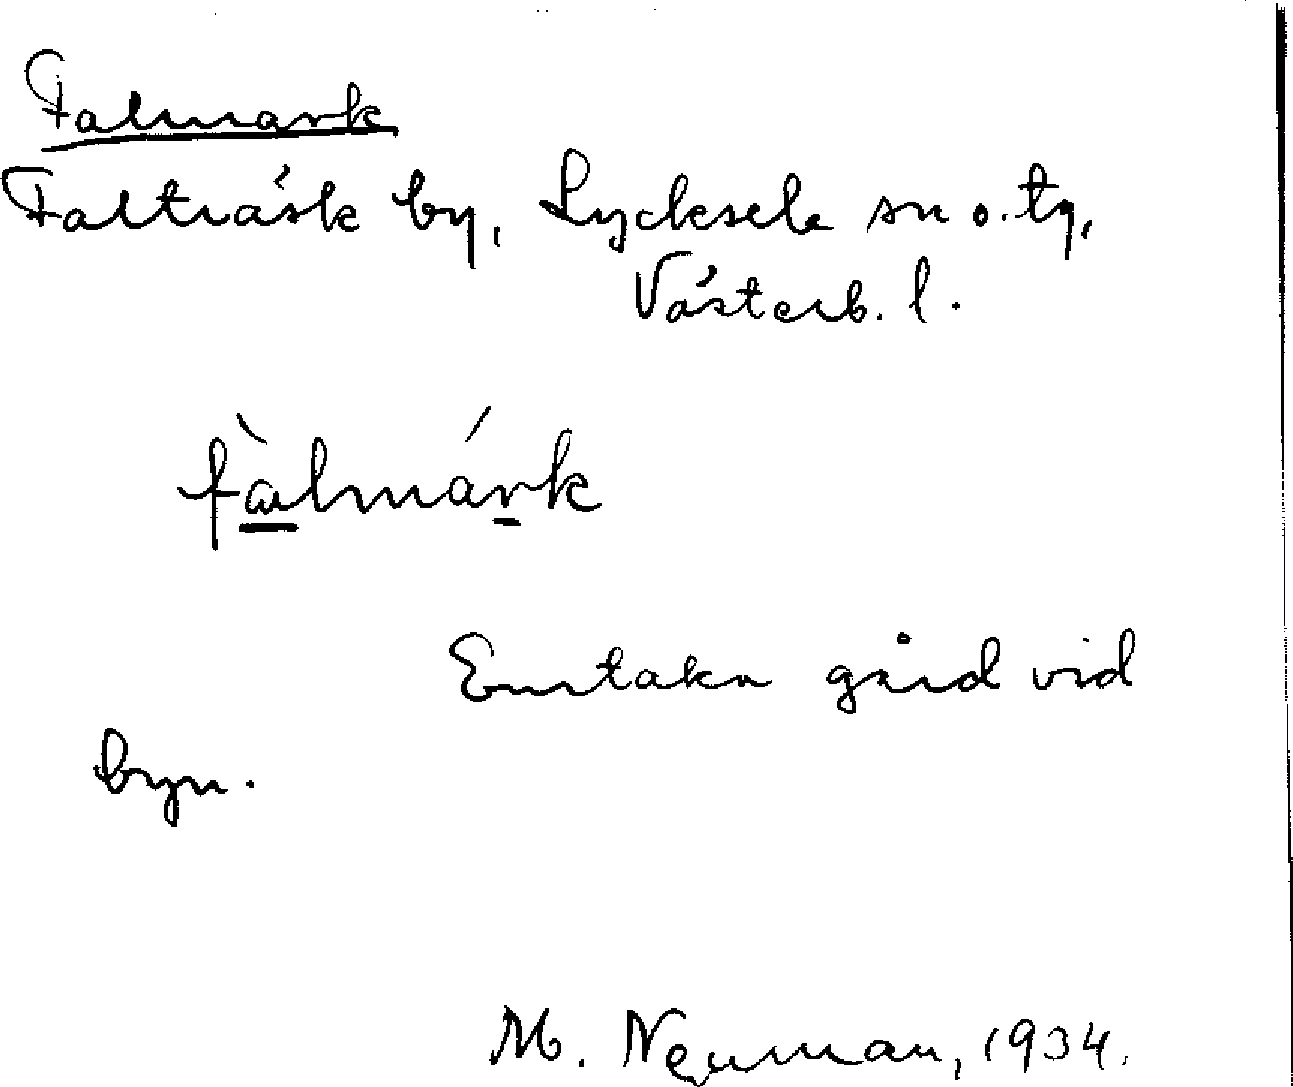 Falmark
Falträsk by, Lycksele sn o. tg,
Västerb. l.
fàlmárk
Enstaka gård vid
byn.
M. Neuman, 1934.